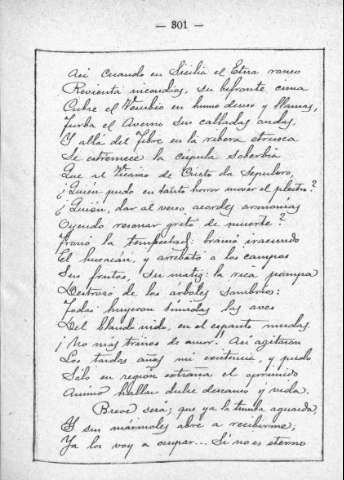 — 301 —
Así cuando en Sicilia el Etna ronco
Revienta incendios, su bifronte cima
Cubre el Vesubio en humo denso y llamas,
Turba el Averno sus calladas ondas.
Y allá del Tibre en la ribera etrusca
Se estremece la cúpula soberbia
Que al Vicario de Cristo da sepulcro,
¿Quién pudo en tanto horror mover el plectro?
¿Quién, dar al verso acordes armonías
Oyendo resonar grito de muerte?
Tronó la tempestad: bramó iracundo
El huracán, y arrebató a los campos
Sus frutos, su matiz: la rica pompa
Destrozó de los árboles sombríos:
Todas huyeron tímidas las aves
Del blando nido, en el espanto mudas.
¡No más trinos de amor! Así agitaron
Los tardos años mi existencia, y pudo
Solo en región extraña el oprimido
Animo hallar dulce descanso y vida.
Breve será; que ya la tumba aguarda,
Y sus mármoles abre a recibirme;
Ya los voy a ocupar... Si no es eterno